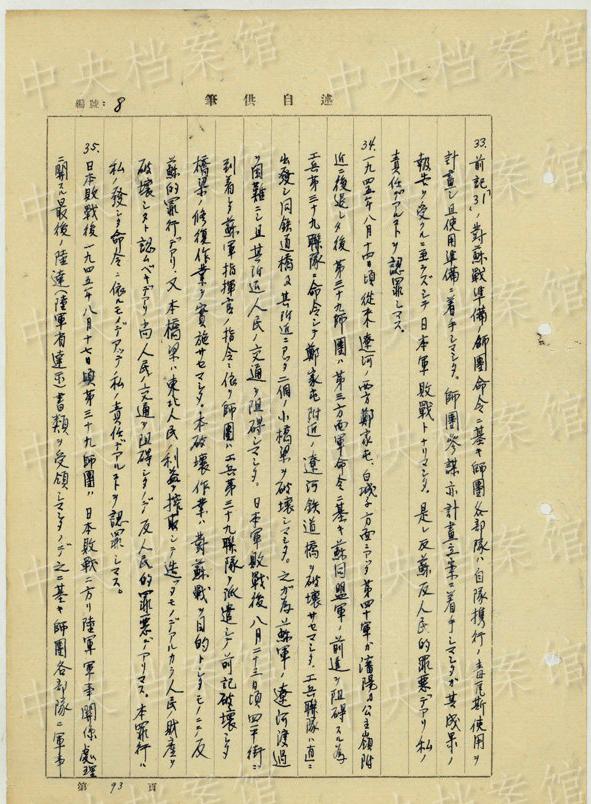 中央档案馆
編號：8
筆供自述
33. 前記「31」ノ対蘇戦準備ノ師團命令ニ基キ師團各部隊ハ自隊携行ノ毒瓦斯使用ヲ
計画シ且使用準備ニ着手シマシタ。師團参謀亦計画立案ニ着手シマシタガ其成果ノ
報告ヲ受クルニ至ラズシテ日本軍敗戦トナリマシタ。是レ反蘇反人民的罪悪デアリ私ノ
責任デアルコトヲ認罪シマス。
34. 一九四五年八月十四日頃従来遼河ノ西方鄭家屯、白城子方面ニアッタ第四十軍ガ瀋陽及公主嶺附
近ニ後退シタ後第三十九師團ハ第三方面軍命令ニ基キ蘇同盟軍ノ前進ヲ阻碍スル為
工兵第三十九聯隊ニ命令シテ鄭家屯附近ノ遼河鉄道橋ヲ破壊サセマシタ。工兵聯隊ハ直ニ
出発シ同鉄道橋及其附近ニアッタ二個ノ小橋梁ヲ破壊シマシタ。之ガ為蘇軍ノ遼河渡過
ヲ困難ニシ且其附近人民ノ交通ヲ阻碍シマシタ。日本軍敗戦後八月二十三日頃四平街ニ
到着シタ蘇軍指揮官ノ指令ニ依リ師團ハ工兵第三十九聯隊ヲ派遣シテ前記破壊シタ
橋梁ノ修復作業ヲ実施サセマシタ。本破壊作業ハ対蘇戦ヲ目的トシタモノニシテ反
蘇的罪行デアリ、又本橋梁ハ東北人民ノ利益ヲ搾取シテ造ッタモノデアルカラ人民財産ヲ
破壊シタト認ムベキデアリ尚人民ノ交通ヲ阻碍シタノデ反人民的罪悪デアリマス。本罪行ハ
私ノ発シタ命令ニ依ルモノデアッテ私ノ責任デアルコトヲ認罪シマス。
35. 日本敗戦後一九四五年八月十七日頃第三十九師團ハ日本敗戦ニ方リ陸軍軍事関係処理
ニ関スル最後ノ陸達（陸軍省達示）書類ヲ受領シマシタノデ之ニ基キ師團各部隊ニ軍事
第 93 頁